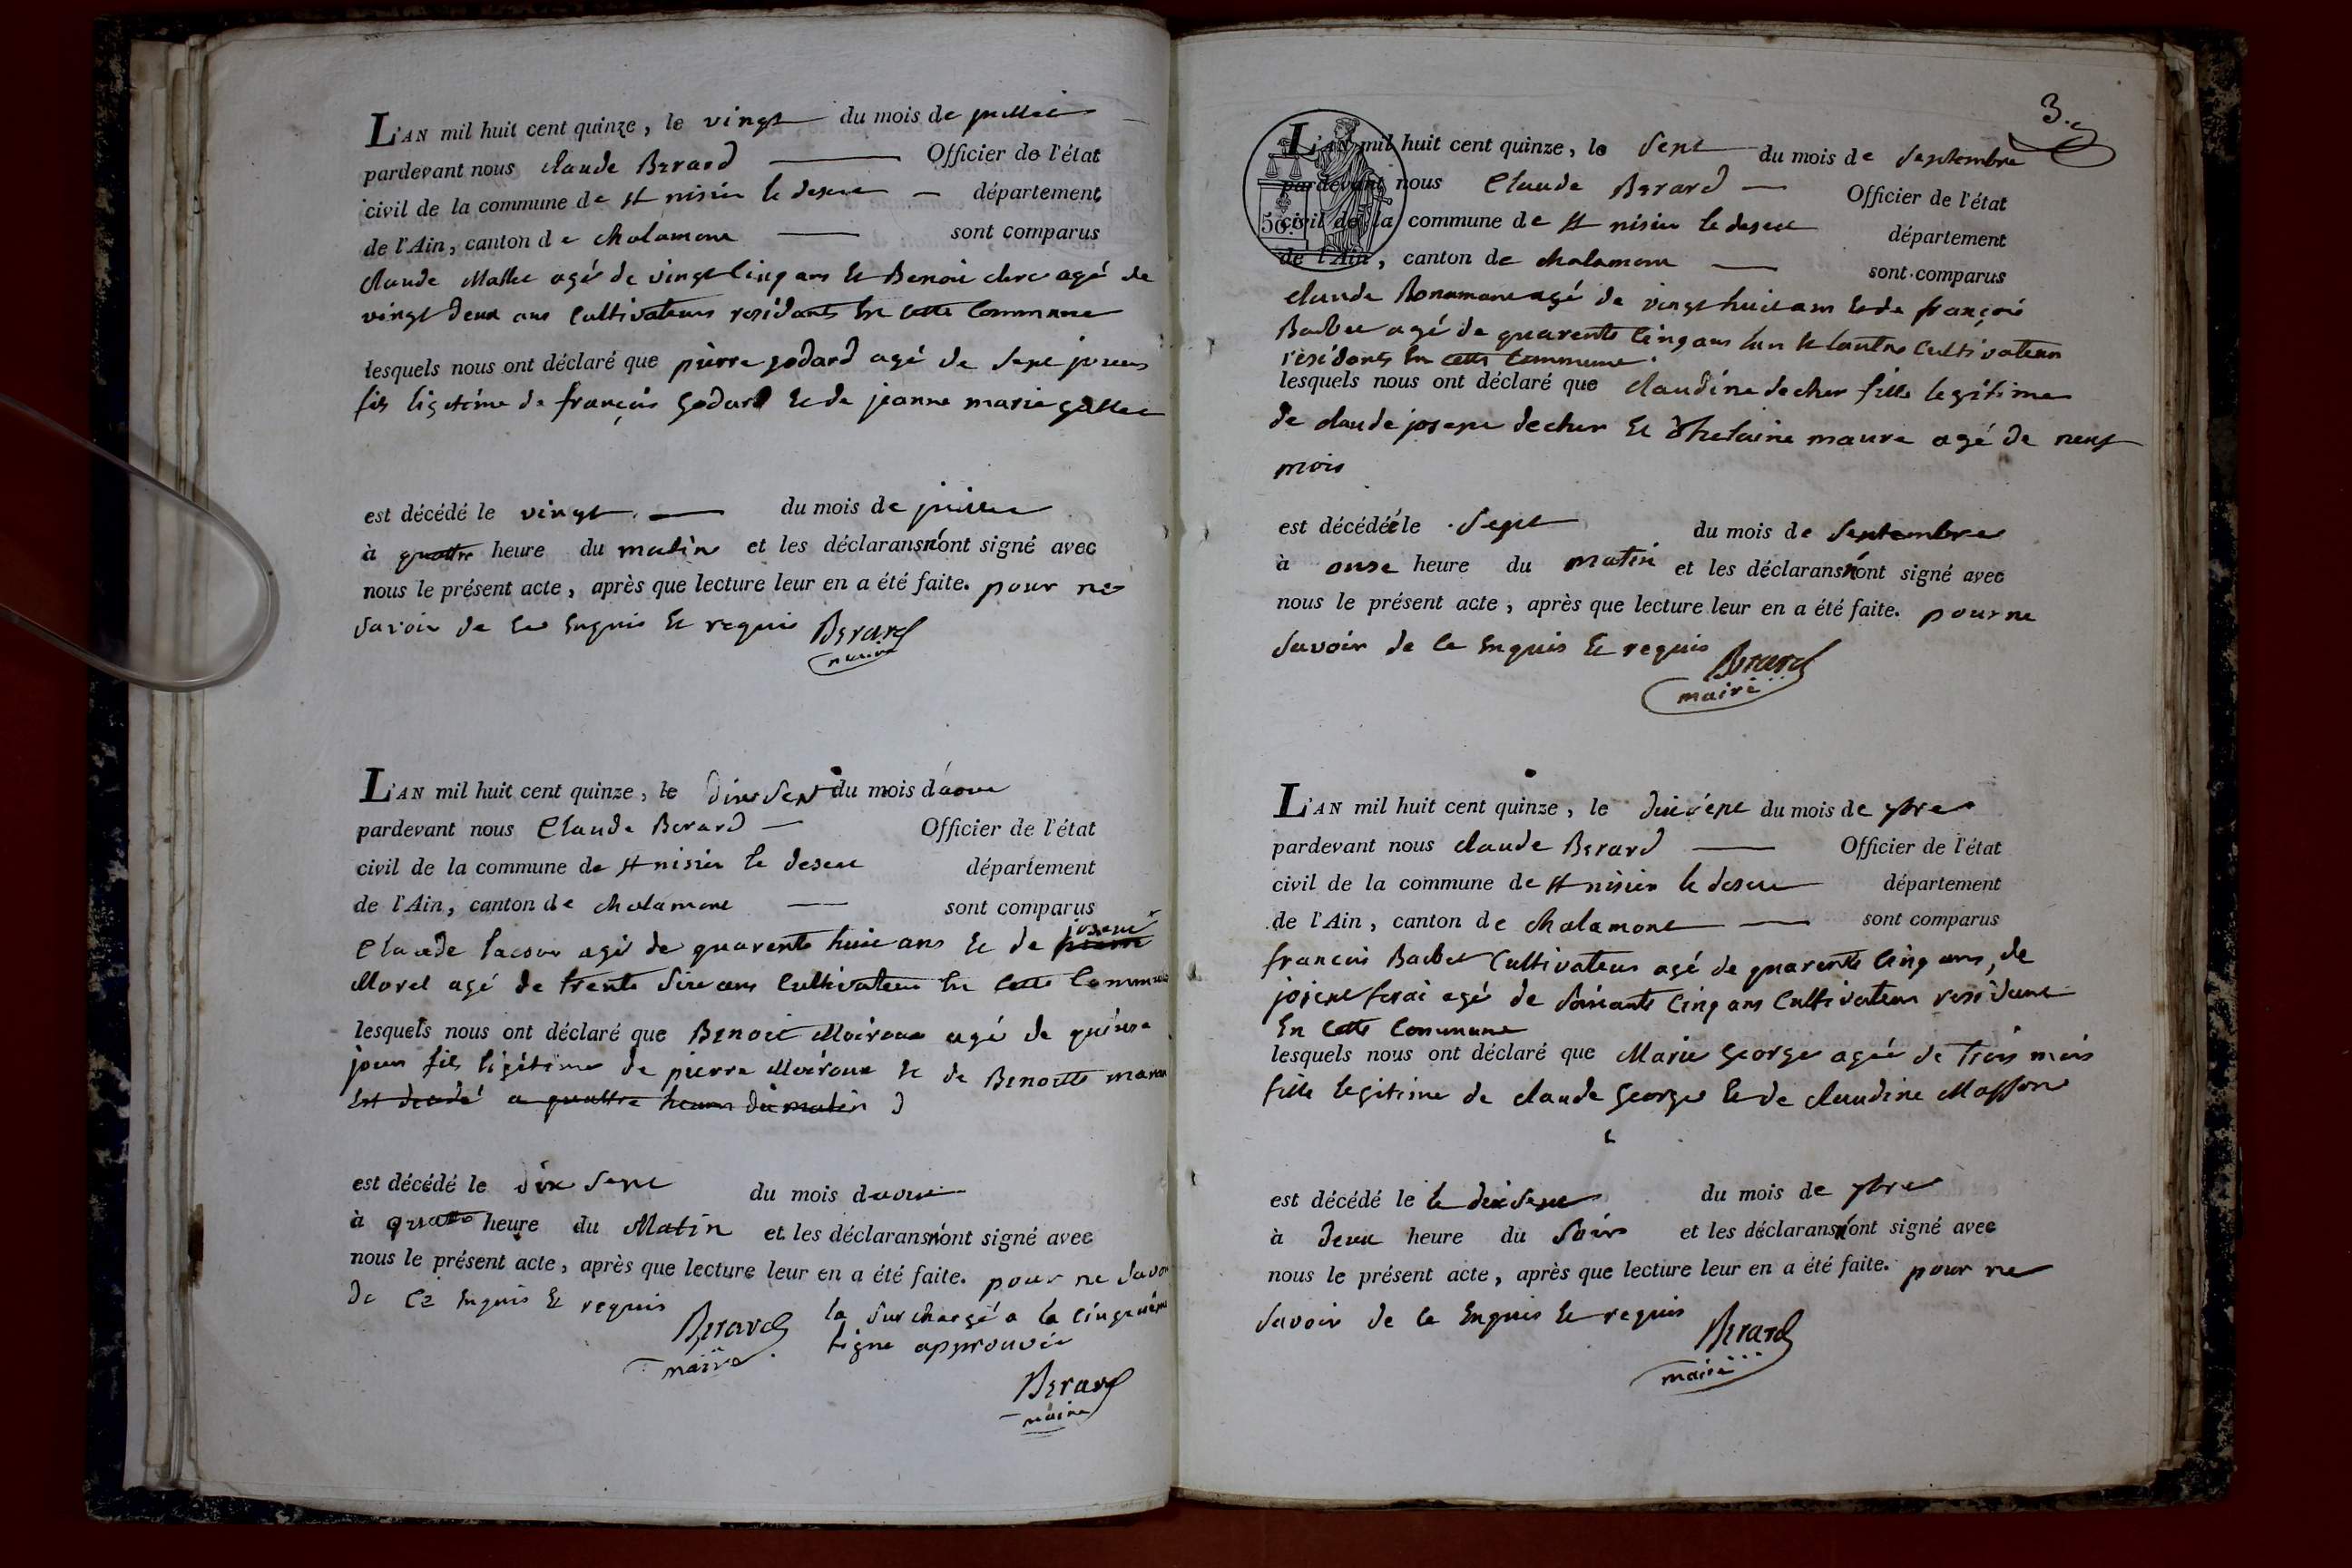 L'AN mil huit cent quinze, le vingt du mois de juillet
pardevant nous claude Berard Officier de l'état
civil de la commune de st nisier le desert département
de l'Ain, canton de chalamont sont comparus
claude Mallet agé de vingt cinq ans et Benoit clerc agé de
vingt deux ans cultivateurs residants en cette commune
lesquels nous ont déclaré que pierre godard agé de sept jours
fils ligitime de françois Godard et de jeanne marie gallet
est décédé le vingt du mois de juillet
à quattre heure du matin et les déclarans n'ont signé avec
nous le présent acte, après que lecture leur en a été faite. pour ne
savoir de ce enquis et requis Berard
maire
L'AN mil huit cent quinze, le dix sept du mois d'aout
pardevant nous Claude Berard Officier de l'état
civil de la commune de st nisier le desert département
de l'Ain, canton de chalamont sont comparus
joseph
Claude agé de quarente huit ans et de pierre
Morel agé de trente six ans cultivateur en cette commune
lesquels nous ont déclaré que Benoit Moiroux agé de quinse
jours fils ligitime de pierre Moiroux et de Benoitte
est decedé a quattre heures du matin
est décédé le dix sept du mois d'aout
à quattre heure du Matin et les déclarans n'ont signé avec
nous le présent acte, après que lecture leur en a été faite. pour ne savoir
de ce enquis et requis Berard la surchargé a la cinquième
maire ligne approuvée
Berard
maire
3.
L'AN mil huit cent quinze, le sept du mois de septembre
pardevant nous Claude Berard Officier de l'état
civil de la commune de st nisier le desert département
de l'Ain, canton de chalamont sont comparus
claude Bonamour agé de vingt huit ans et de françois
Barbet agé de quarente cinq ans l'un et l'autre cultivateur
résidants en cette commune
lesquels nous ont déclaré que claudine decher fille legitime
de claude joseph decher et maure agé de neuf
mois
est décédée le sept du mois de septembre
à onse heure du matin et les déclarans n'ont signé avec
nous le présent acte, après que lecture leur en a été faite. pour ne
savoir de ce enquis et requis Berard
maire
L'AN mil huit cent quinze, le dixsept du mois de 7bre
pardevant nous claude Berard Officier de l'état
civil de la commune de st nisier le desert département
de l'Ain, canton de chalamont sont comparus
francois Barbet Cultivateur agé de quarente cinq ans, de
joseph agé de soixante cinq ans cultivateur residant
En cette Commune
lesquels nous ont déclaré que Marie George agée de trois mois
fille legitime de claude George et de claudine Masson
est décédé le le dix sept du mois de 7bre
à deux heure du soir et les déclarans n'ont signé avec
nous le présent acte, après que lecture leur en a été faite. pour ne
savoir de ce enquis et requis Berard
maire